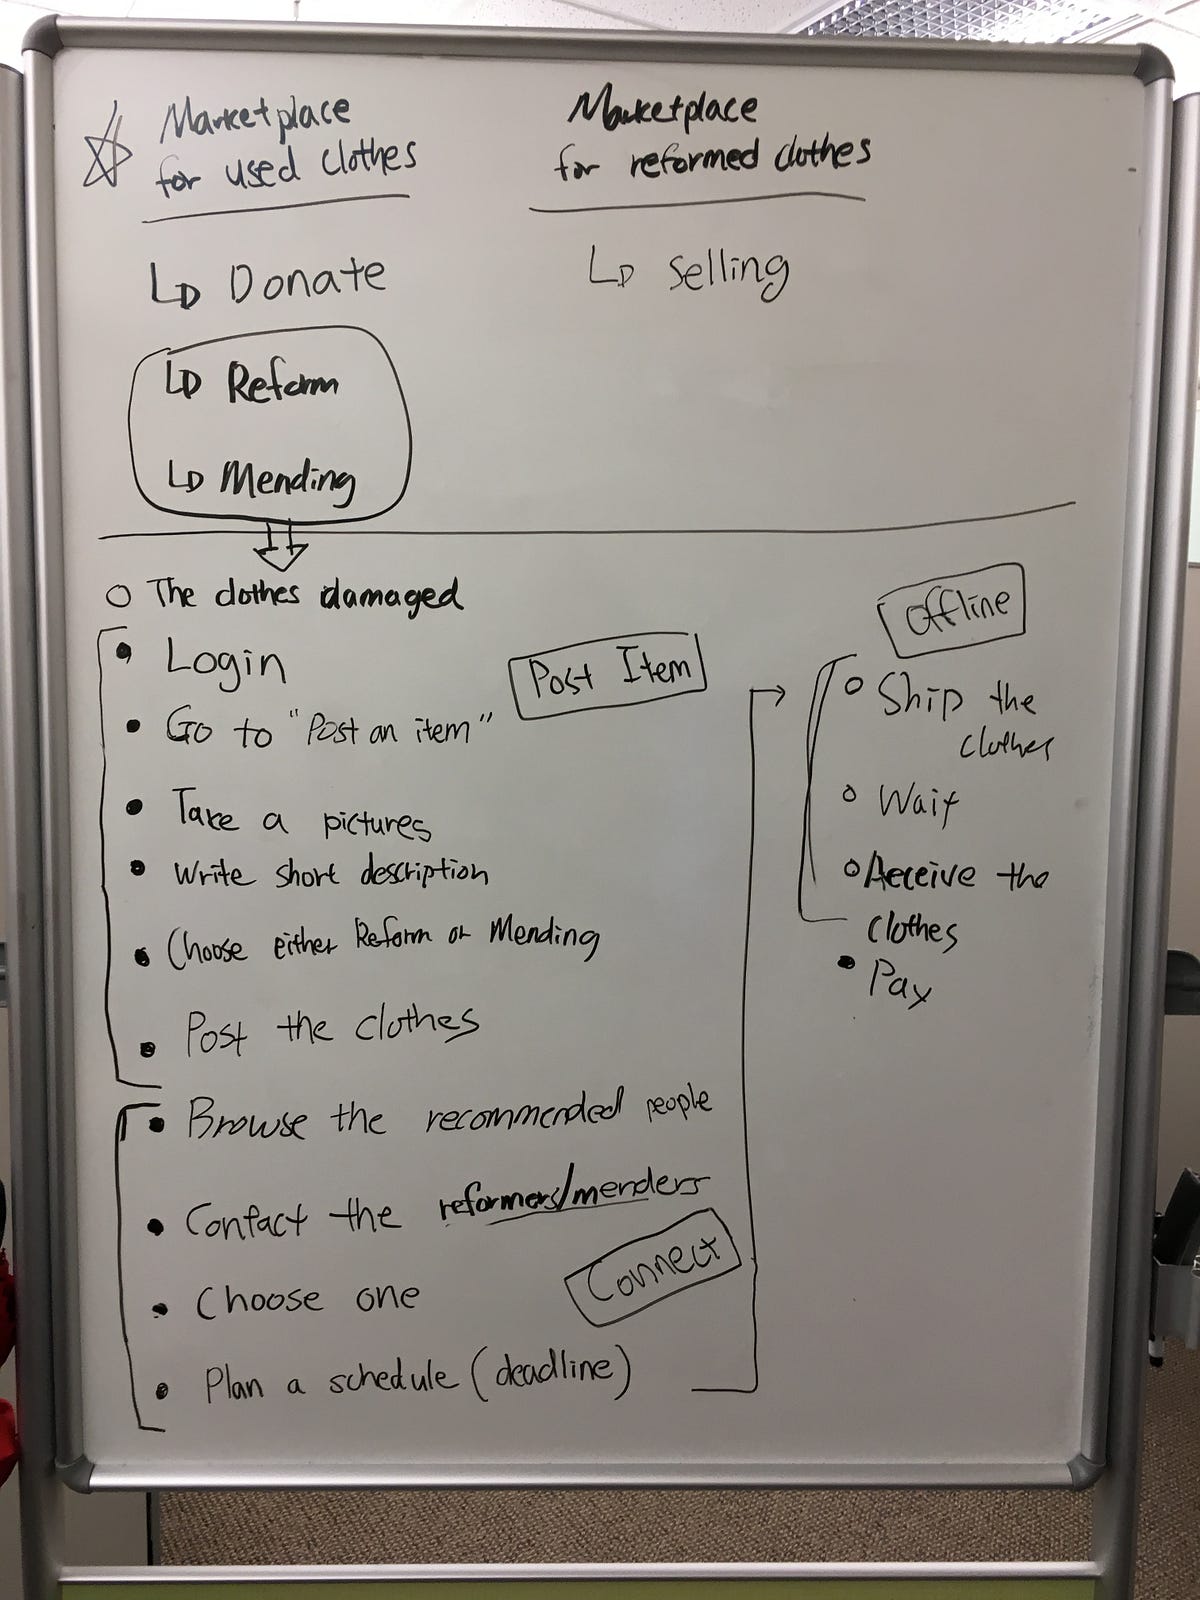 Marketplace
for used clothes
Donate
Reform
Mending
Marketplace
for reformed clothes
selling
The clothes damaged
Login
Post Item
Go to "Post an item"
Take a pictures
Write short description
Choose either Reform or Mending
Post the clothes
Browse the recommended people
Contact the reformers/menders
Connect
Choose one
Plan a schedule (deadline)
Offline
Ship the
clothes
Wait
Receive the
clothes
Pay